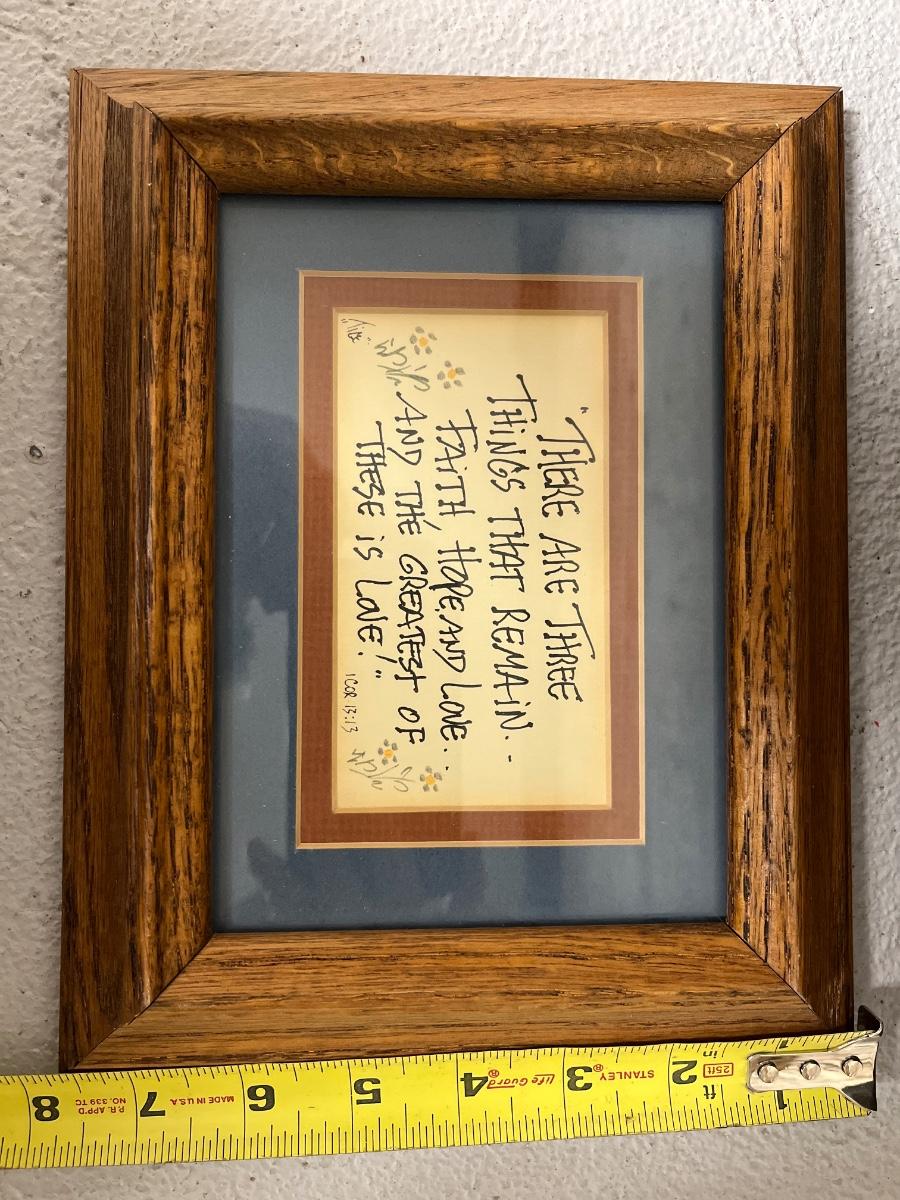 "THERE ARE THREE
THINGS THAT REMAIN. -
FAITH, HOPE, AND LOVE.
AND THE GREATEST OF
THESE IS LOVE."
1 COR. 13:13
1
2
3
4
5
6
7
8
ft
in
25ft
STANLEY®
Life Guard®
MADE IN U.S.A.
P.R. APP'D
NO. 339 TC